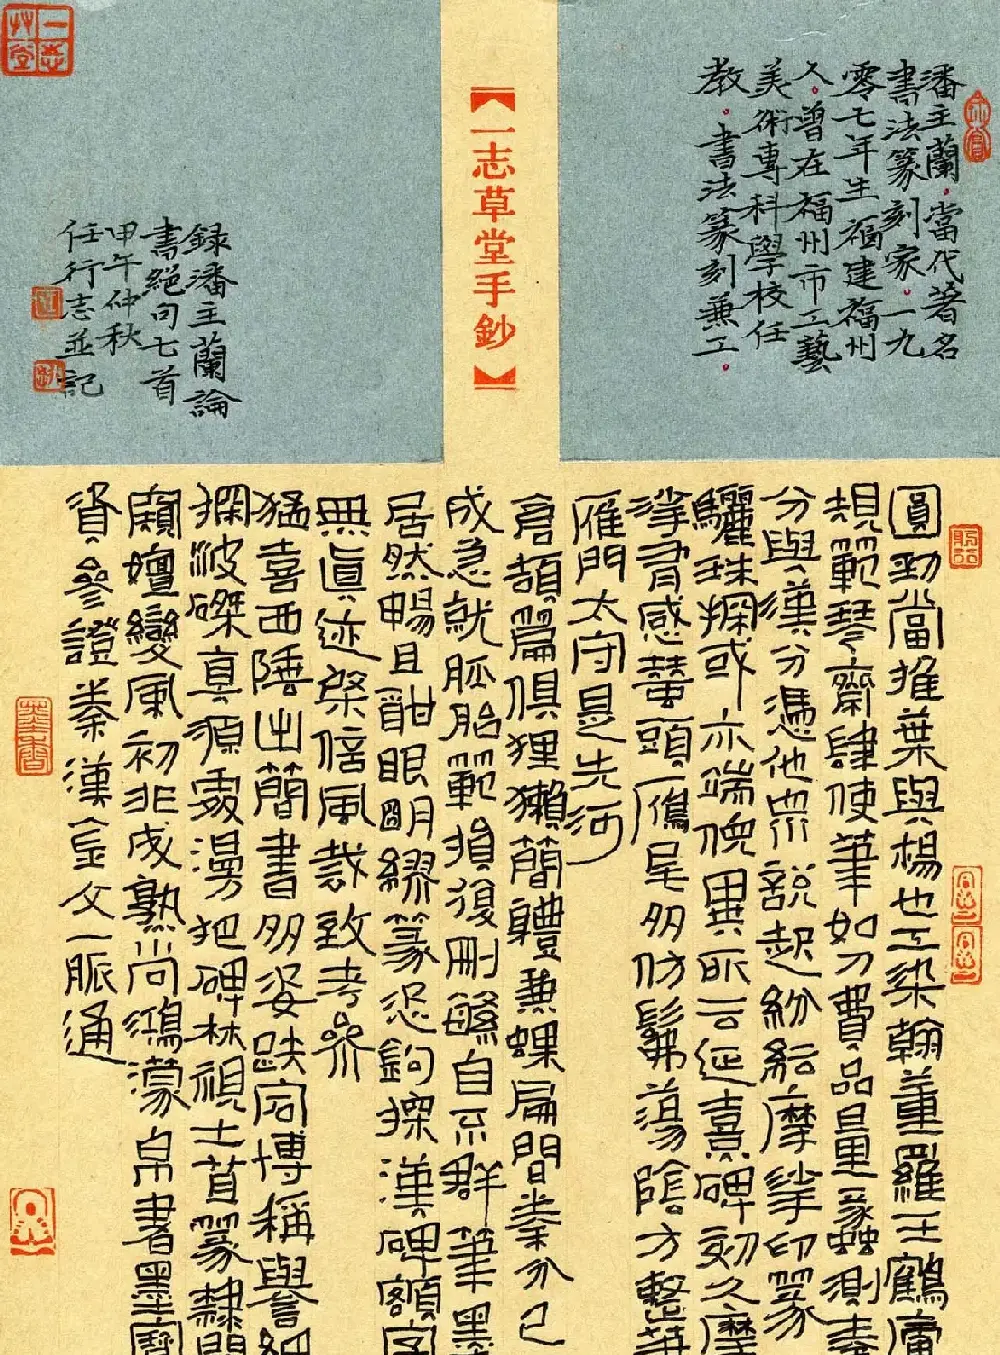 潘主蘭·當代著名
書法篆刻家·一九
零七年生福建福州
人·曾在福州市工藝
美術專科學校任
教·書法篆刻兼工·
【一志草堂手鈔】
錄潘主蘭論
書絕句七首
甲午仲秋
任行志並記
圓勁當推葉與楊也工染翰董羅王鶴廬
規範琴齋肆使筆如刀費品量蟊測秦
分與漢分憑他眾說起紛紜摩挲印篆
驪珠探或亦端倪異所云延熹碑刻久摩
挲有感蠶頭雁尾多仿髴蕩陰方整
雁門太守是先河
倉頡篇俱狸獺簡體兼蝶扁間秦分已
成急就胚胎範損復刪繇自不群筆墨
居然暢且酣眼明繆篆恐鉤探漢碑額字
無真迹槃倍風裁致考眾
猛喜西陲出簡書多姿跌宕博稱譽細
撊波磔真須處漫把碑林視士苴篆隸間
嬗變風初非成熟尚鴻濛帛書墨寶
資參證秦漢金文一脈通